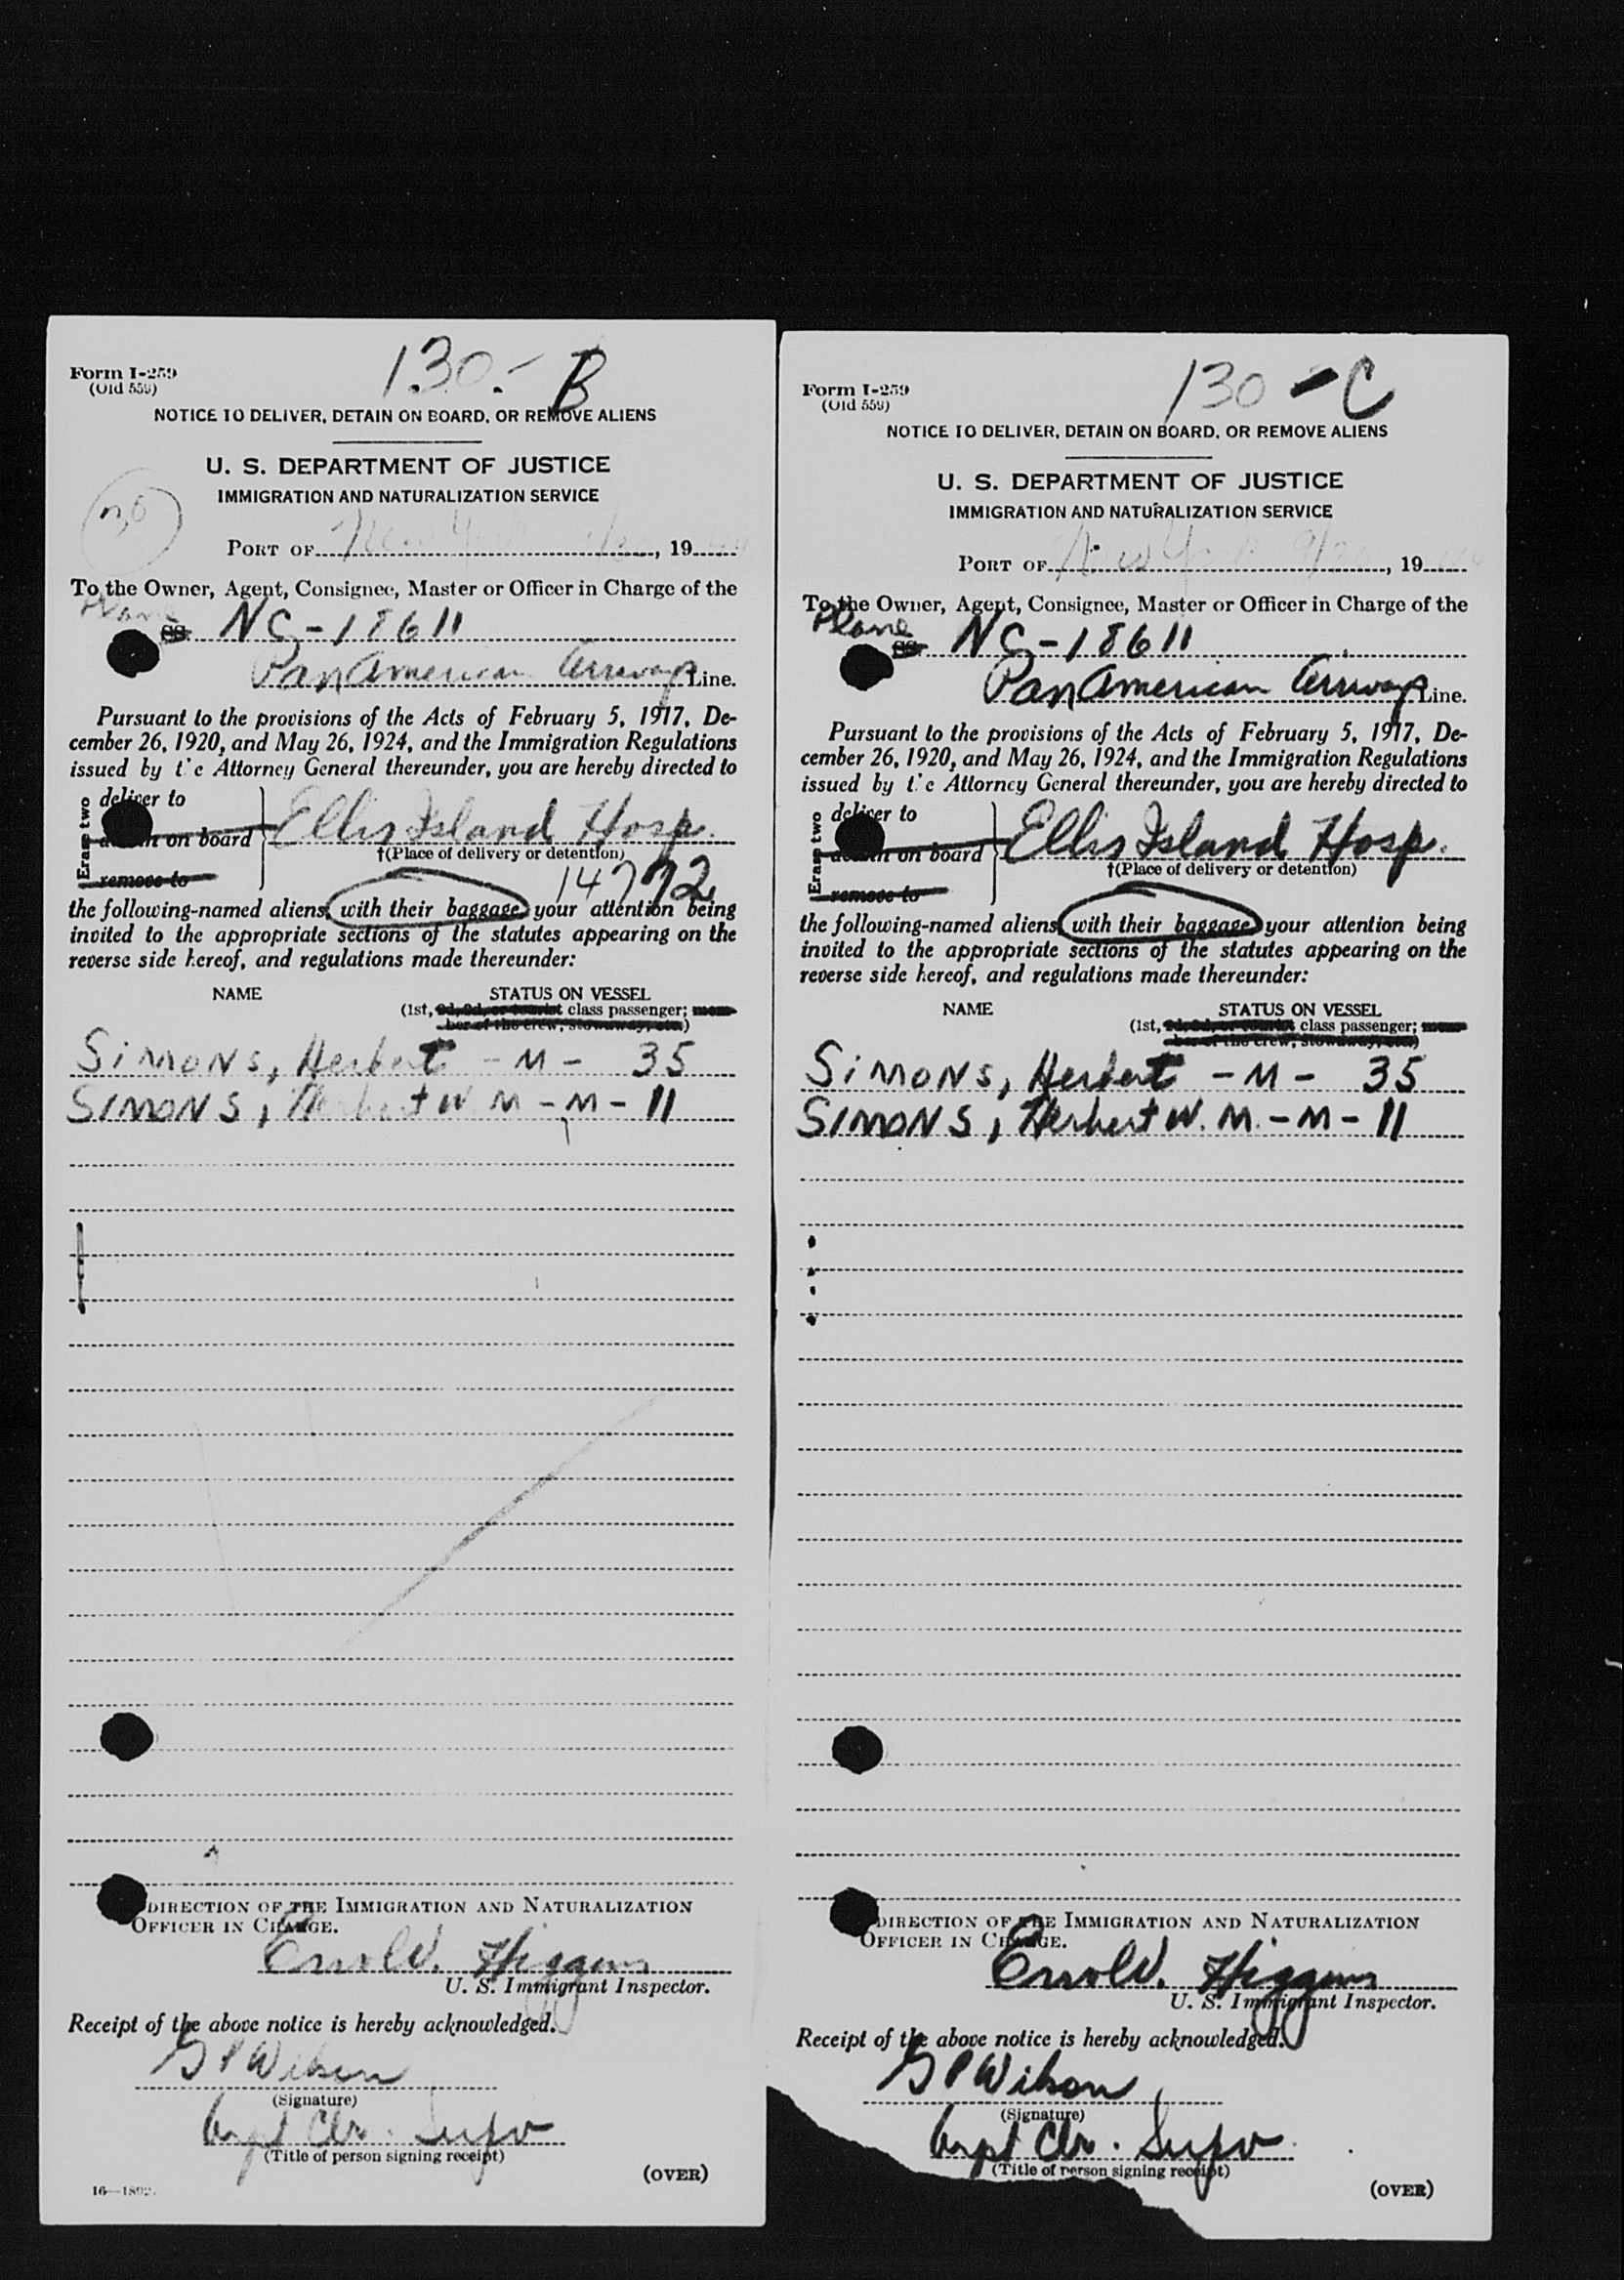 130 - B
Form I-259
(Old 559)
NOTICE TO DELIVER, DETAIN ON BOARD, OR REMOVE ALIENS
U. S. DEPARTMENT OF JUSTICE
IMMIGRATION AND NATURALIZATION SERVICE
PORT OF New York, 19
To the Owner, Agent, Consignee, Master or Officer in Charge of the
Plane
SS. NC-18611
Pan American Airways Line.
Pursuant to the provisions of the Acts of February 5, 1917, De-
cember 26, 1920, and May 26, 1924, and the Immigration Regulations
issued by the Attorney General thereunder, you are hereby directed to
Erase two
deliver to
on board Ellis Island Hosp.
†(Place of delivery or detention)
remove to
14772
the following-named aliens, with their baggage, your attention being
invited to the appropriate sections of the statutes appearing on the
reverse side hereof, and regulations made thereunder:
NAME STATUS ON VESSEL
(1st, 2d, 3d, or tourist class passenger; mem-
ber of the crew, stowaway, etc.)
SIMONS, Herbert - M - 35
SIMONS, Herbert W. M - M - 11
DIRECTION OF THE IMMIGRATION AND NATURALIZATION
OFFICER IN CHARGE.
Errol D. Higgins
U. S. Immigrant Inspector.
Receipt of the above notice is hereby acknowledged.
G P Wilson
(Signature)
Arpt Clr. Supv
(Title of person signing receipt)
(OVER)
130 - C
Form I-259
(Old 559)
NOTICE TO DELIVER, DETAIN ON BOARD, OR REMOVE ALIENS
U. S. DEPARTMENT OF JUSTICE
IMMIGRATION AND NATURALIZATION SERVICE
PORT OF New York 9/20, 19
To the Owner, Agent, Consignee, Master or Officer in Charge of the
Plane
SS. NC-18611
Pan American Airways Line.
Pursuant to the provisions of the Acts of February 5, 1917, De-
cember 26, 1920, and May 26, 1924, and the Immigration Regulations
issued by the Attorney General thereunder, you are hereby directed to
Erase two
deliver to
on board Ellis Island Hosp.
†(Place of delivery or detention)
remove to
the following-named aliens, with their baggage, your attention being
invited to the appropriate sections of the statutes appearing on the
reverse side hereof, and regulations made thereunder:
NAME STATUS ON VESSEL
(1st, 2d, 3d, or tourist class passenger; mem-
ber of the crew, stowaway, etc.)
SIMONS, Herbert - M - 35
SIMONS, Herbert W. M. - M - 11
DIRECTION OF THE IMMIGRATION AND NATURALIZATION
OFFICER IN CHARGE.
Errol D. Higgins
U. S. Immigrant Inspector.
Receipt of the above notice is hereby acknowledged.
G P Wilson
(Signature)
Arpt Clr. Supv
(Title of person signing receipt)
(OVER)